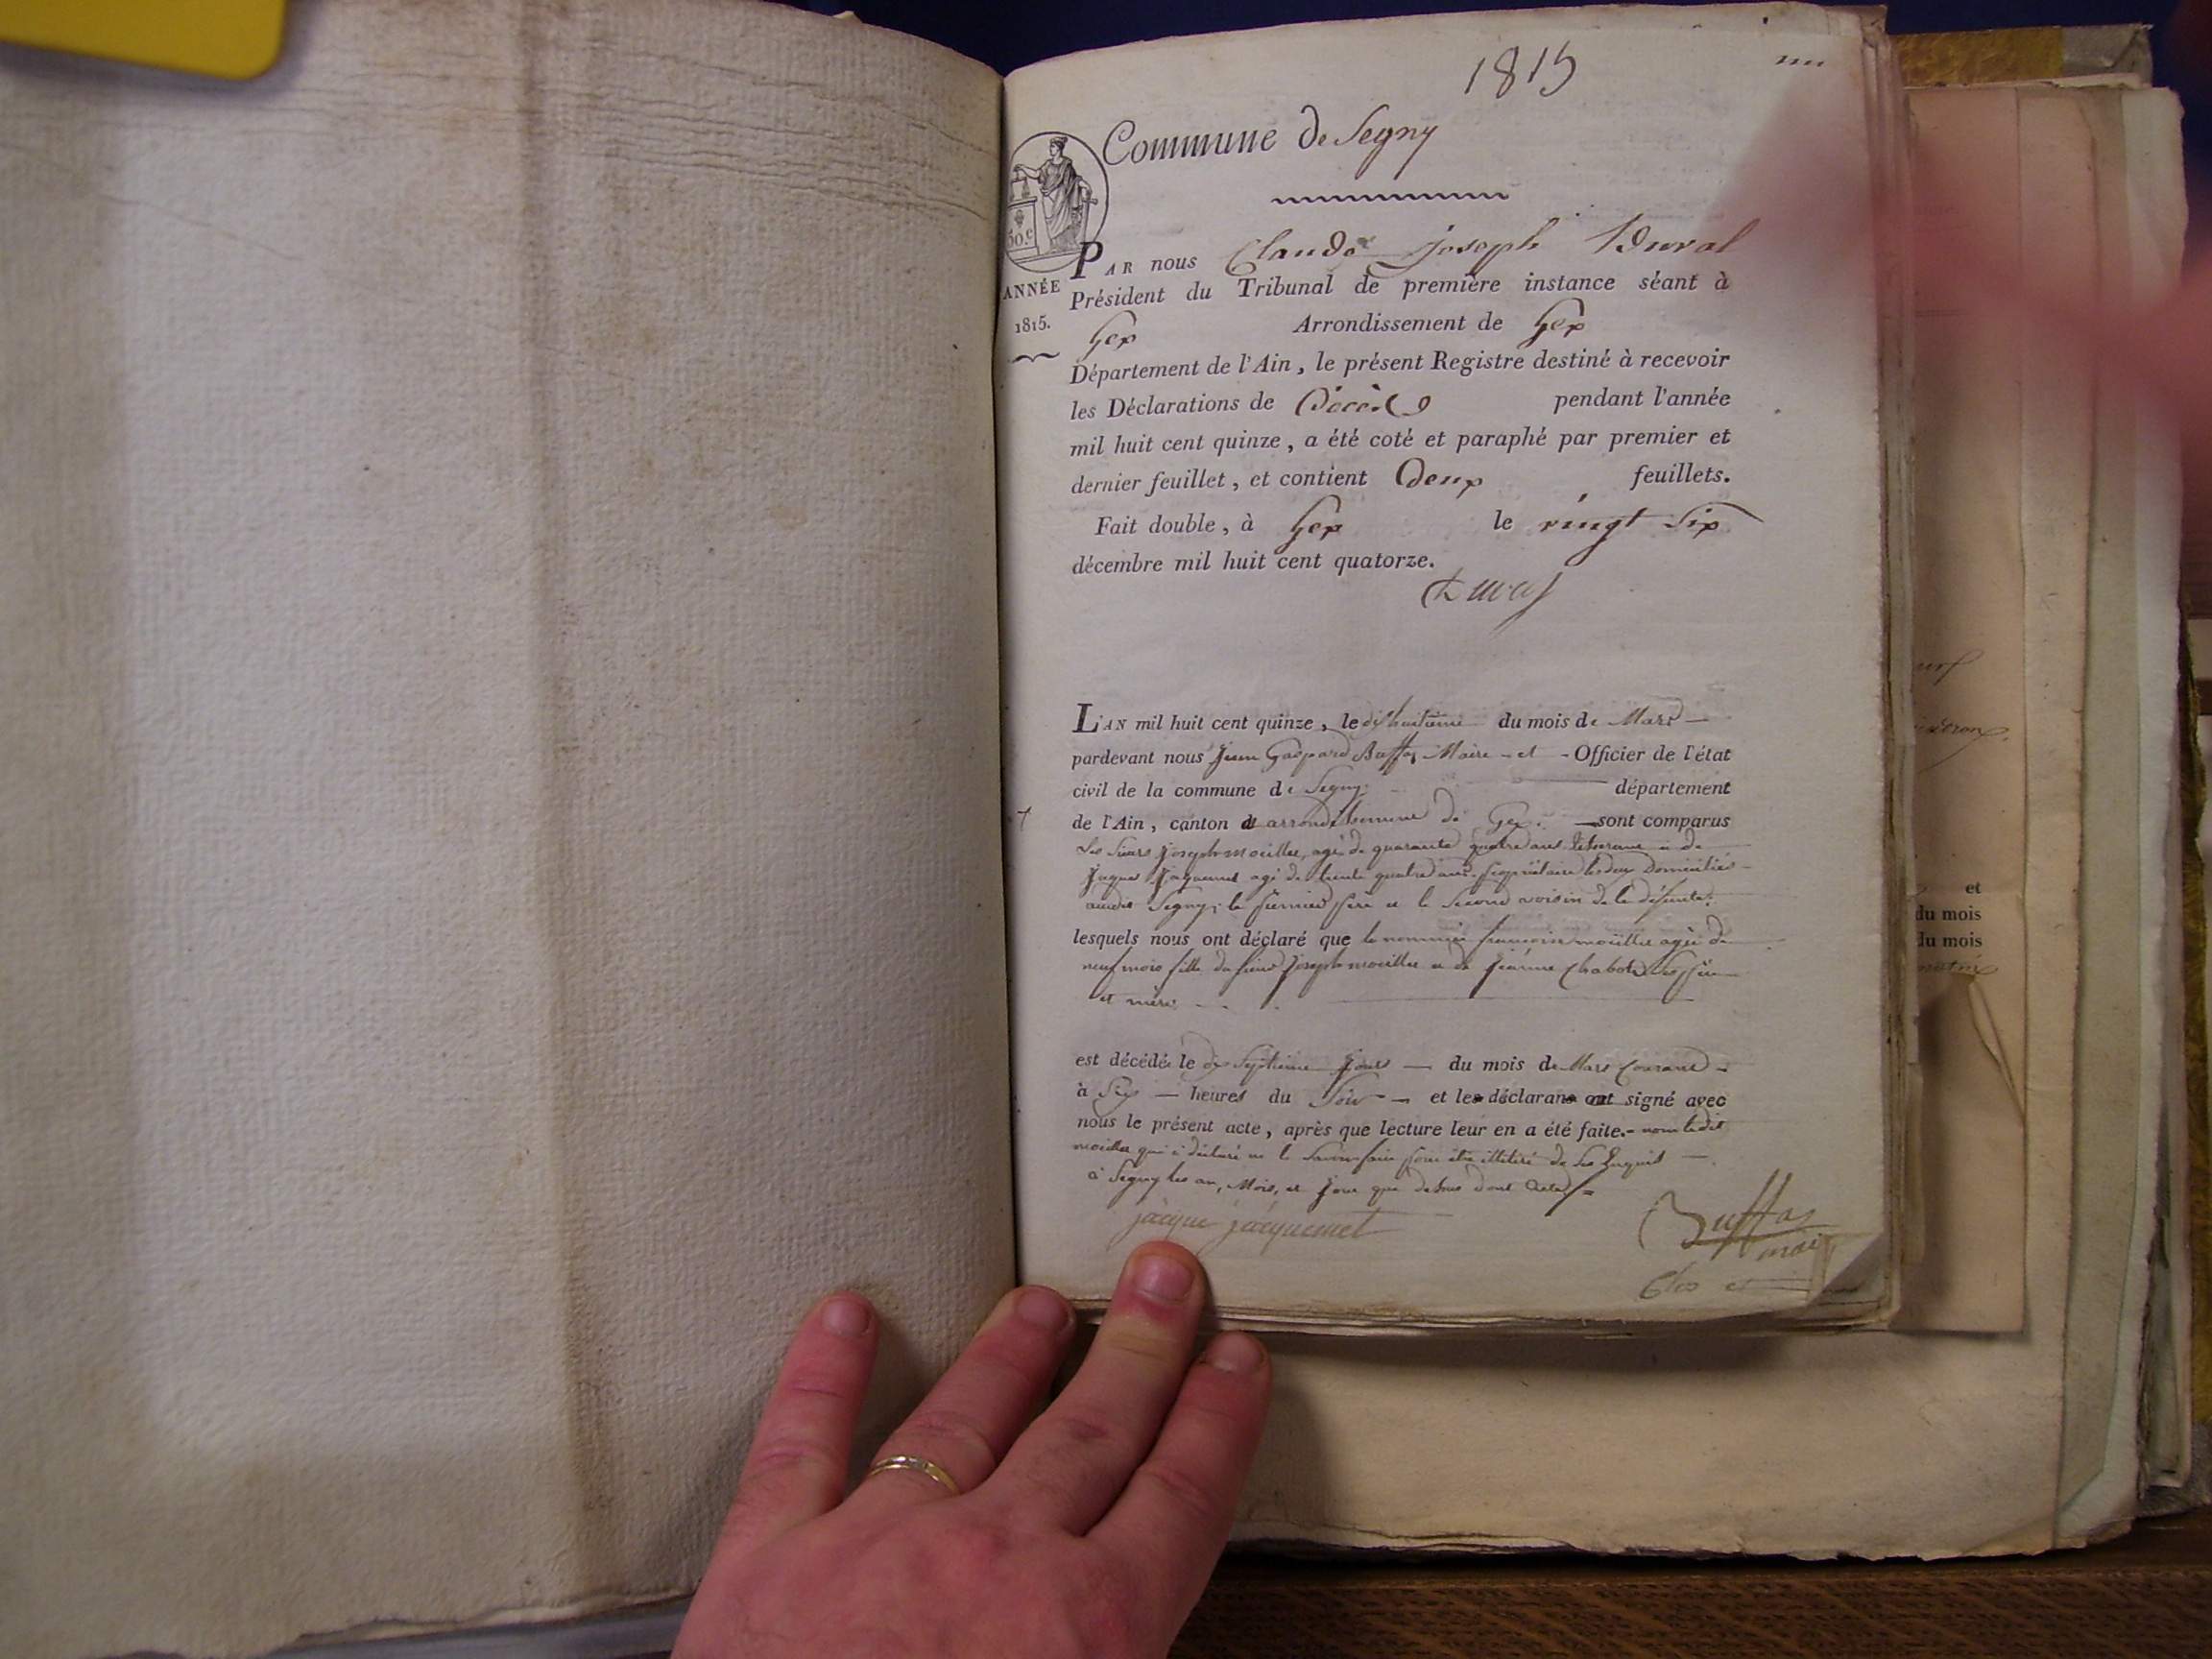 1815
Commune de Segny
50.c
ANNÉE
1815.
PAR nous Claude Joseph Duval
Président du Tribunal de première instance séant à
Gex Arrondissement de Gex
Département de l'Ain, le présent Registre destiné à recevoir
les Déclarations de Décès pendant l'année
mil huit cent quinze, a été coté et paraphé par premier et
dernier feuillet, et contient Deux feuillets.
Fait double, à Gex le vingt Six
décembre mil huit cent quatorze.
Duval
L'AN mil huit cent quinze, le dixhuitième du mois de Mars
pardevant nous Jean Gaspard Buffas Maire et Officier de l'état
civil de la commune de Segny département
de l'Ain, canton et arrondissement de Gex. sont comparus
Les Sieurs Joseph moullie, agé de quarante quatre ans et de
Jaques Jaquemet agé de trente quatre ans propriétaire les deux Domiciliés
audit Segny, le premier père et le Second voisin de la défunte.
lesquels nous ont déclaré que la nommée francoise moullie agée de
neuf mois fille du sieur Joseph moullie et de Jeanne Chabot Ses père
et mère
est décédée le dix Septième jour du mois de Mars Courant
à Six heures du Soir et les déclarans ont signé avec
nous le présent acte, après que lecture leur en a été faite. non ledit
moullie qui a déclaré ne le Savoir faire pour être illitéré de Ses Enquis
à Segny les an, Mois, et Jour que dessus dont acte
jacque jacquemet
Buffas
mai
Clos et
et
du mois
du mois